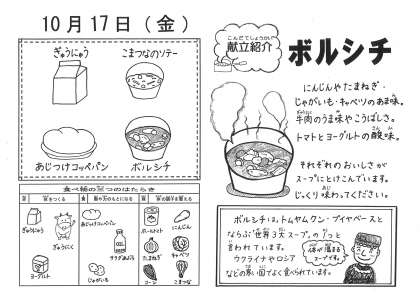 10月17日(金)
ぎゅうにゅう
こまつなのソテー
あじつけコッペパン
ボルシチ
食べ物の三つのはたらき
ぎゅうにゅう
ぎゅうにく
ヨーグルト
あじつけコッペパン
サラダあぶら
じゃがいも
ホールトマト
にんじん
たまねぎ
キャベツ
コーン
こまつな
こんだてしょうかい
献立紹介
ボルシチ
にんじんやたまねぎ・
じゃがいも・キャベツのあま味。
牛肉のうま味やこうばしさ。
トマトとヨーグルトの酸味。
それぞれのおいしさが
スープにとけこんでいます。
じっくり味わってください。
ボルシチは、トムヤムクン・ブイヤベースと
ならぶ"世界3大スープ"の1つと
言われています。
ウクライナやロシア
などの寒い国でよく食べられています。
体が温まる
スープです。